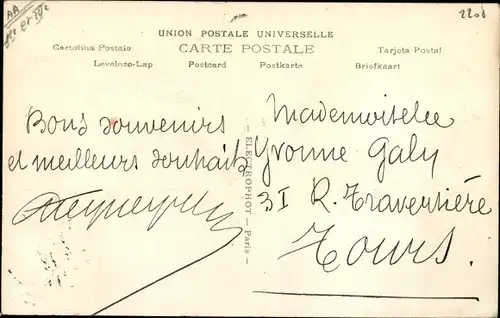 2208
UNION POSTALE UNIVERSELLE
CARTE POSTALE
Cartolina Postale
Tarjeta Postal
Levelezo-Lap Postcard Postkarte Briefkaart
Bons souvenirs
et meilleurs souhaits
ELECTROPHOT - Paris
Mademoiselle
Yvonne Galy
31 R. Traversière
Tours.